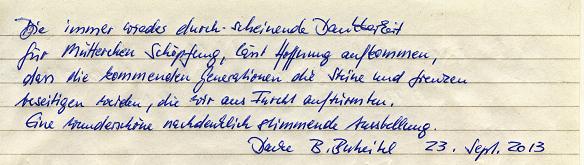 Die immer wieder durch-scheinende Dankbarkeit
für Mütterchen Schöpfung, lässt Hoffnung aufkommen,
dass die kommenden Generationen die Steine und Grenzen
beseitigen werden, die wir aus Furcht auftürmten.
Eine wunderschöne nachdenklich stimmende Ausstellung.
Danke B. 23. Sept. 2013